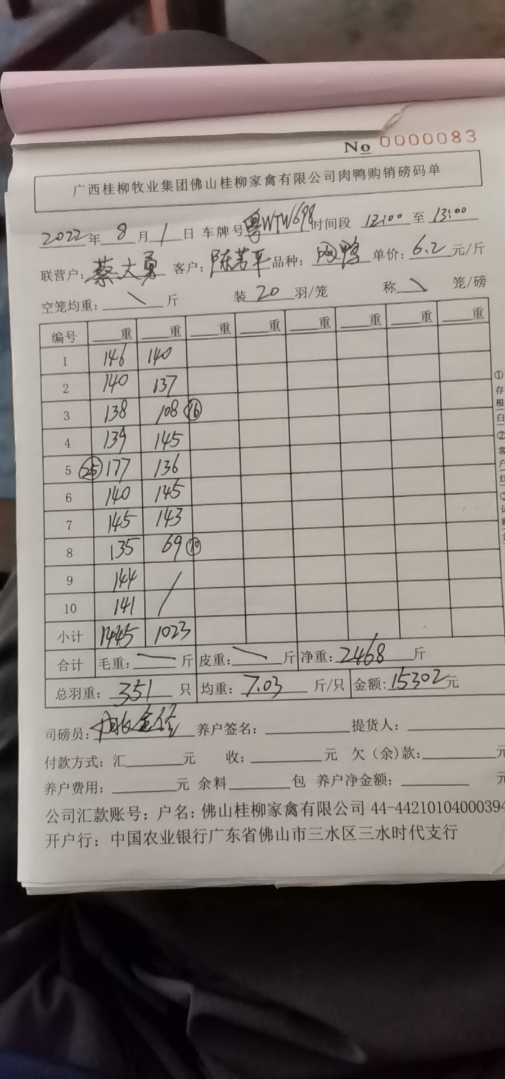 No 0000083
广西桂柳牧业集团佛山桂柳家禽有限公司肉鸭购销磅码单
2022年 8 月 1 日 车牌号 粤WTW698 时间段 12:00 至 13:00
联营户: 蔡大勇 客户: 陈芳平 品种: 肉鸭 单价: 6.2 元/斤
空笼均重: \ 斤 装 20 羽/笼 称 \ 笼/磅
编号 重 重 重 重 重 重 重 重
1 146 140
2 140 137
3 138 108 16
4 139 145
5 25 177 136
6 140 145
7 145 143
8 135 69 10
9 144 /
10 141
小计 1445 1023
合计 毛重: 斤 皮重: 斤 净重: 2468 斤
总羽重: 351 只 均重: 7.03 斤/只 金额: 15302 元
司磅员: 养户签名: 提货人:
付款方式: 汇 元 收: 元 欠(余)款: 元
养户费用: 元 余料 包 养户净金额: 元
公司汇款账号: 户名: 佛山桂柳家禽有限公司 44-44210104000394
开户行: 中国农业银行广东省佛山市三水区三水时代支行
①存根(白)②客户(红)③